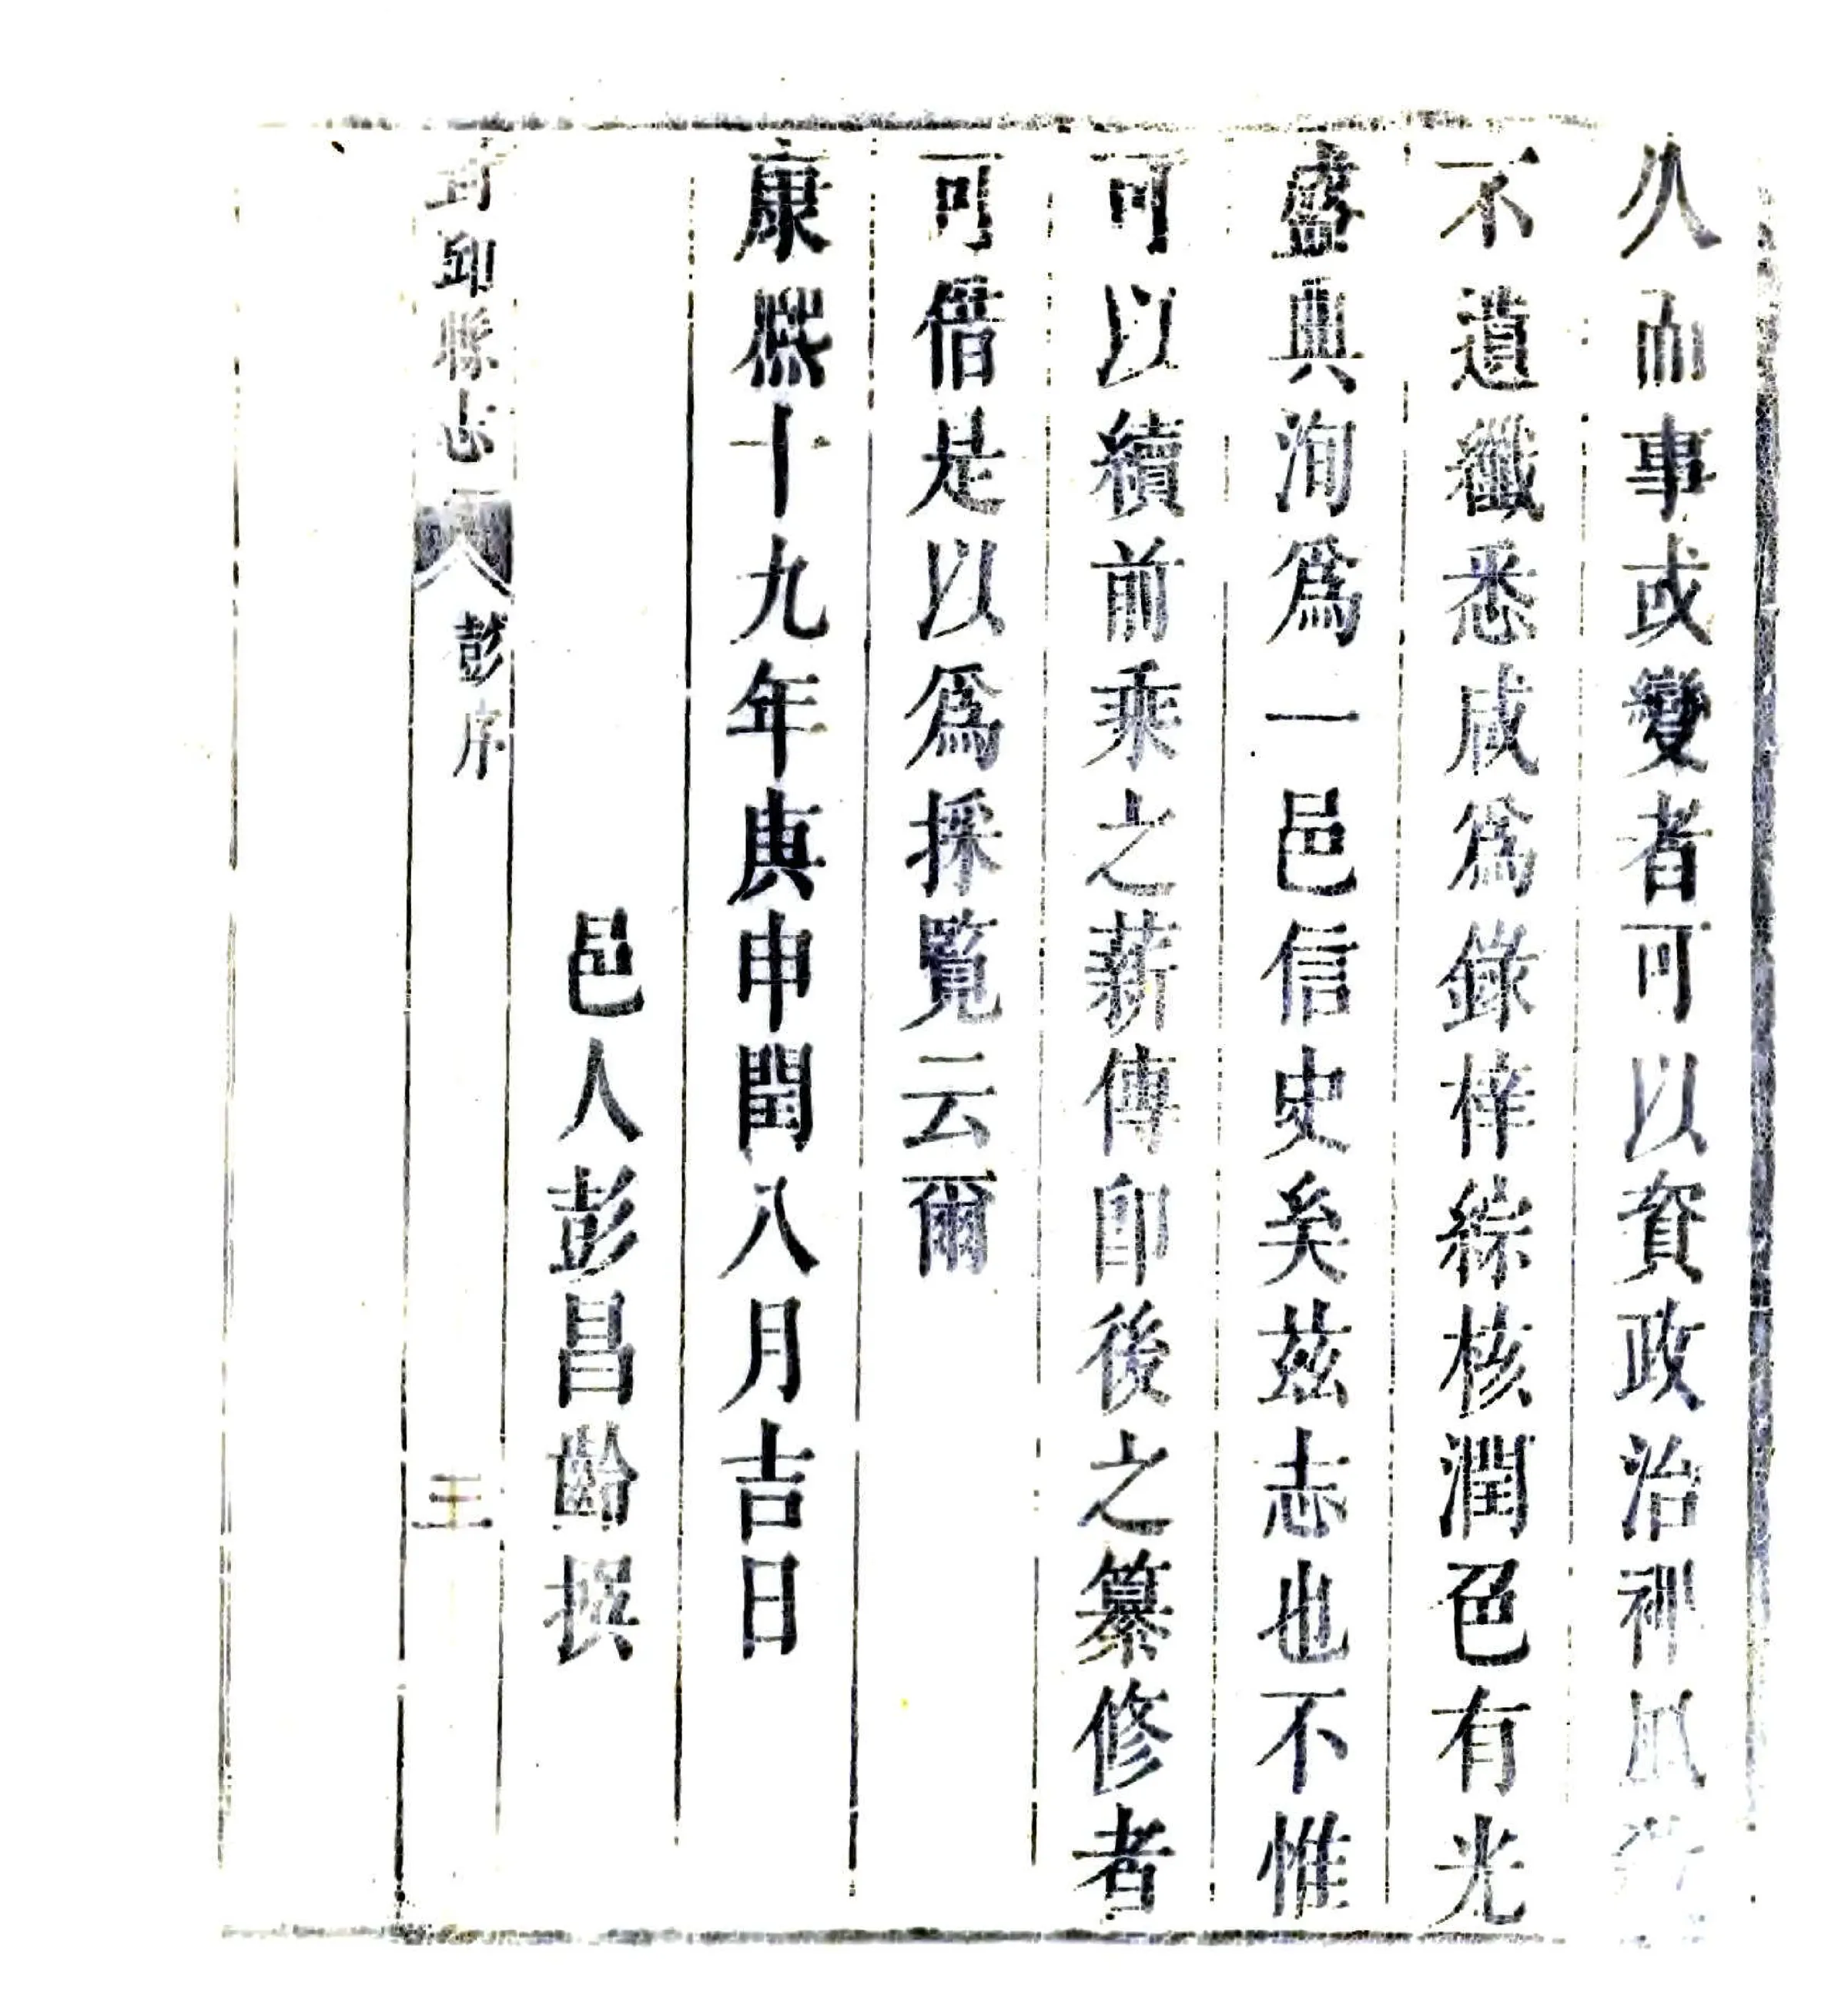 久而事或變者可以資政治裨風
不遺纖悉咸爲錄梓綜核潤色有光
盛典洵爲一邑信史矣茲志也不惟
可以續前乘之薪傳卽後之纂修者
可借是以爲採覽云爾
康熙十九年庚申閏八月吉日
邑人彭昌齡撰
封邱縣志
彭序
三